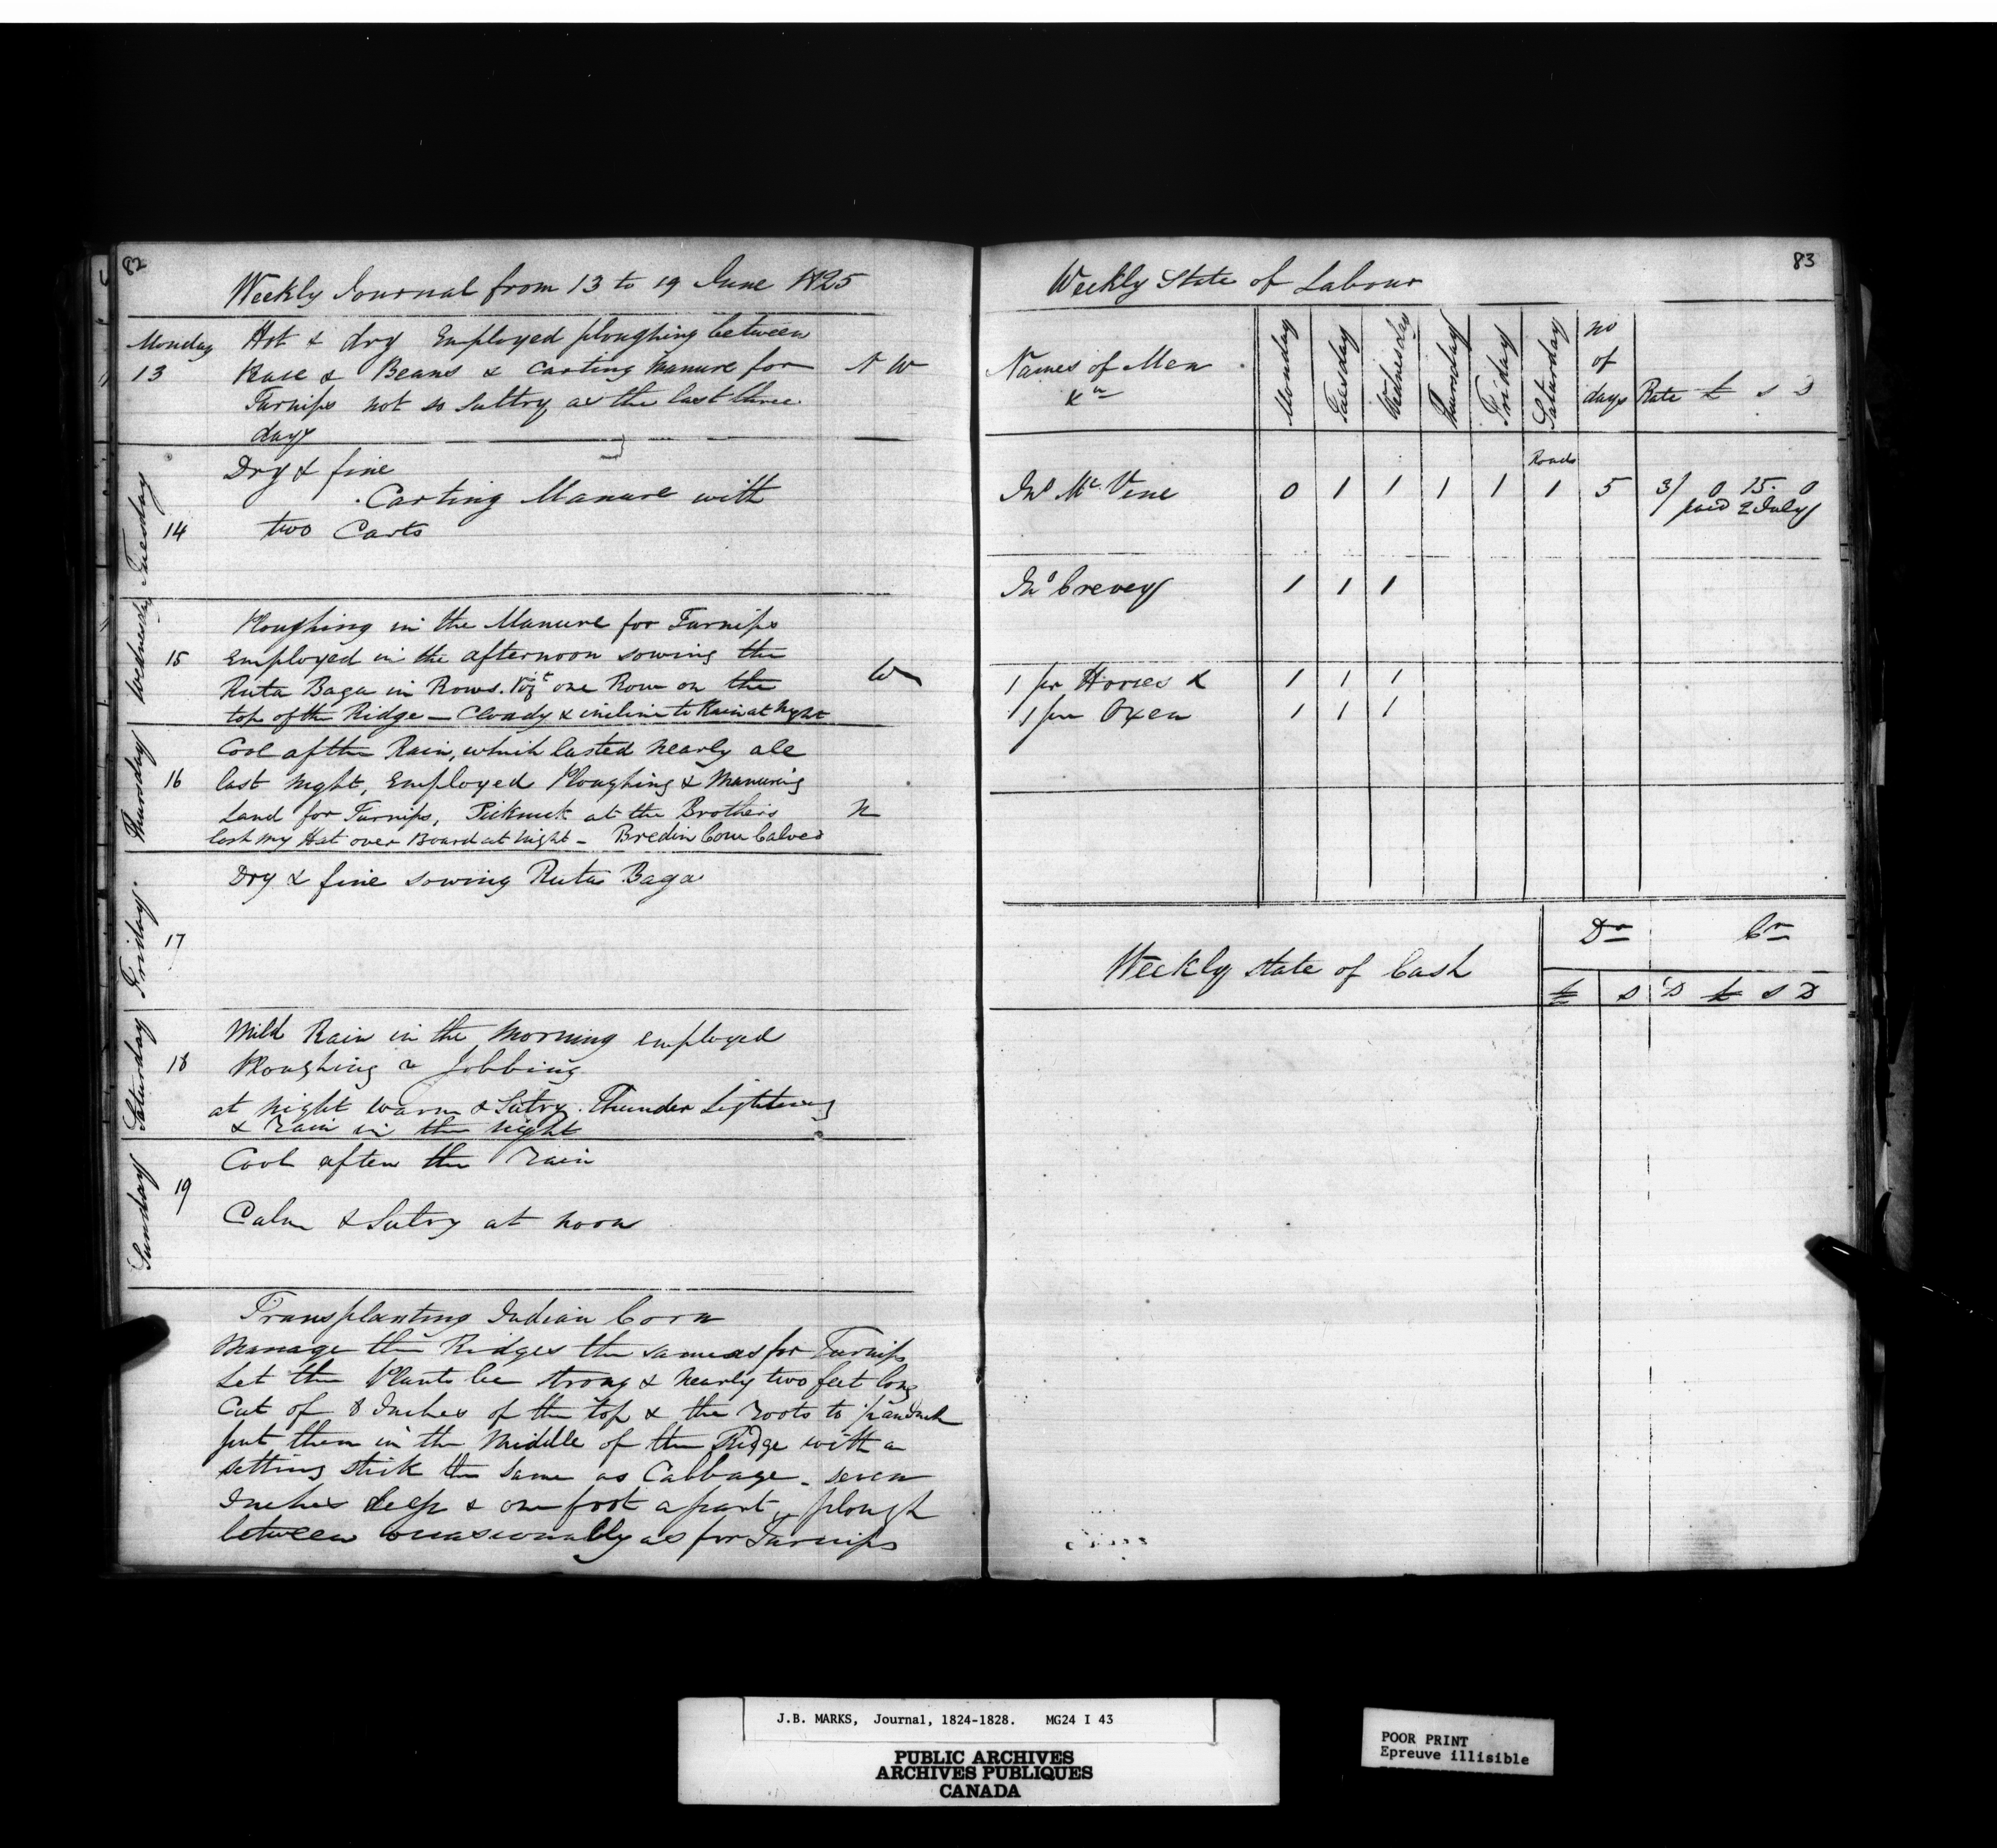 82
Weekly Journal from 13 to 19 June 1825
Monday 13
Hot & dry Employed ploughing between
& Beans & Carting Manure for N W
Turnips not so sultry as the last three
days
Tuesday 14
Dry & fine
Carting Manure with
two Carts
Wednesday 15
Ploughing in the Manure for Turnips
Employed in the afternoon sowing the
Ruta Baga in Rows. Vizt one Row on the W
top of the Ridge — Cloudy & incline to Rain at Night
Thursday 16
Cool after Rain, which lasted nearly all
last night, Employed Ploughing & Manuring
Land for Turnips, Picknick at the Brothers N
lost my Hat over Board at night - Bredin Cow Calved
Friday. 17
Dry & fine sowing Ruta Baga
Saturday 18
Mild Rain in the Morning employed
Ploughing & Jobbing
at night warm & Sutry. Thunder Lightening
& rain in the night
Sunday 19
Cool after the rain
Calm & Sutry at noon
Transplanting Indian Corn
Manage the Ridges the same as for Turnips
Let the Plants be strong & nearly two feet long
Cut of 8 Inches of the top & the roots to 1/2 an Inch
put them in the Middle of the Ridge with a
setting stick the same as Cabbage - seven
Inches deep & one foot apart - plough
between occasionally as for Turnips
83
Weekly State of Labour
Names of Men &c Monday Tuesday Wednesday Thursday Friday Saturday no of days Rate £ s D
Roads
Jno Mc Vene 0 1 1 1 1 1 5 3/ 0 15. 0
paid 2 July
Jno Crevey 1 1 1
1 pr Horses & 1 1 1
1 pr Oxen 1 1 1
Weekly state of Cash Dr Cr
£ s D £ s D
J.B. MARKS, Journal, 1824-1828. MG24 I 43
PUBLIC ARCHIVES
ARCHIVES PUBLIQUES
CANADA
POOR PRINT
Epreuve illisible